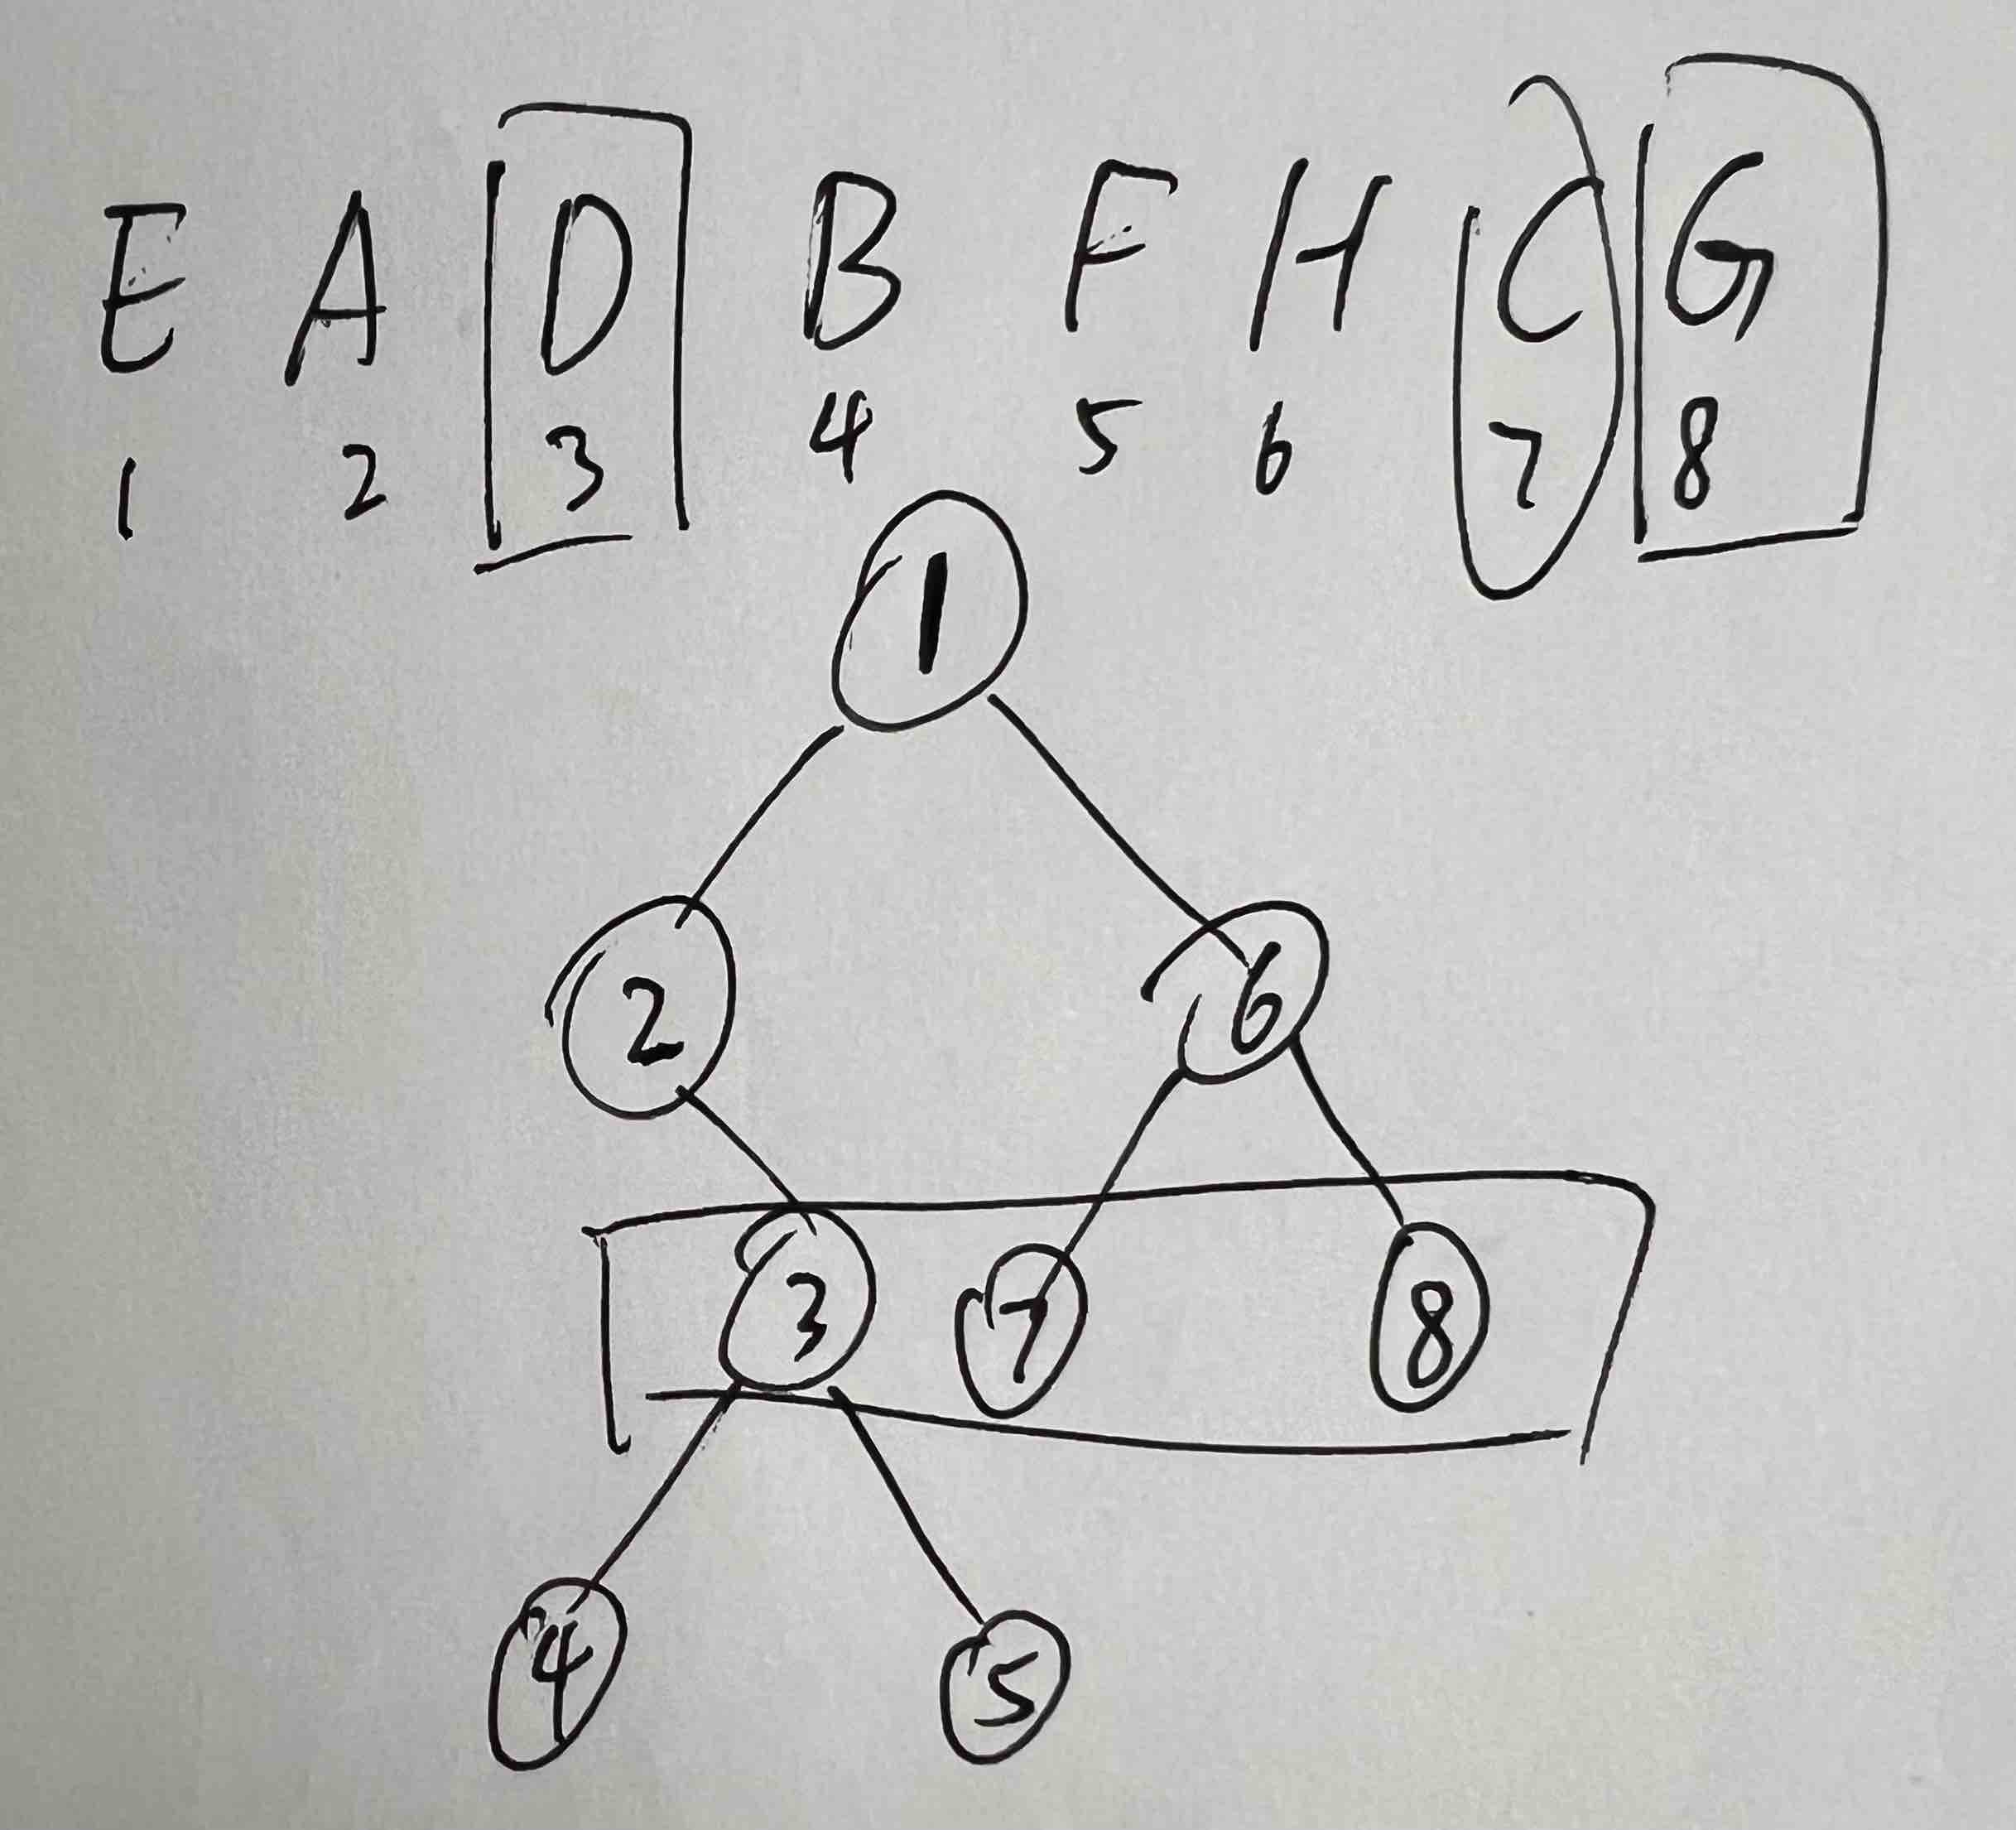 E A D B F H C G
1 2 3 4 5 6 7 8
1
2 6
3 7 8
4 5